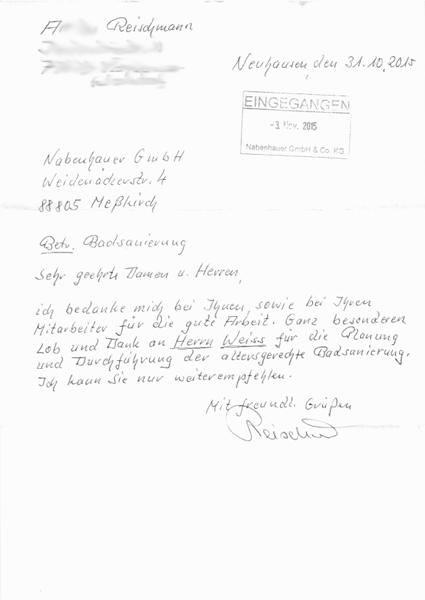 Reischmann
Neuhausen, den 31.10.2015
EINGEGANGEN
-3. Nov. 2015
Nabenhauer GmbH & Co. KG
Nabenhauer GmbH
Weidenäckerstr. 4
88805 Meßkirch
Betr. Badsanierung
Sehr geehrte Damen u. Herren,
ich bedanke mich bei Ihnen, sowie bei Ihren
Mitarbeiter für die gute Arbeit. Ganz besonderen
Lob und Dank an Herrn Weiss für die Planung
und Durchführung der altersgerechte Badsanierung.
Ich kann Sie nur weiterempfehlen.
Mit freundl. Grüßen